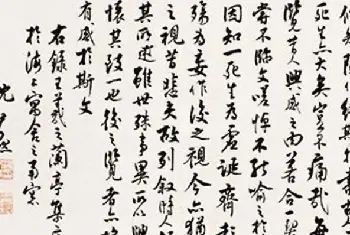 死生亦大矣豈不痛哉每
覽昔人興感之由若合一契
嘗不臨文嗟悼不能喻之於
固知一死生為虛誕齊彭
殤為妄作後之視今亦猶
之視昔悲夫故列敘時人
其所述雖世殊事異所以興
懷其致一也後之覽者亦將
有感於斯文
右錄王羲之蘭亭集序
於海上寓舍之南窗
沈尹默